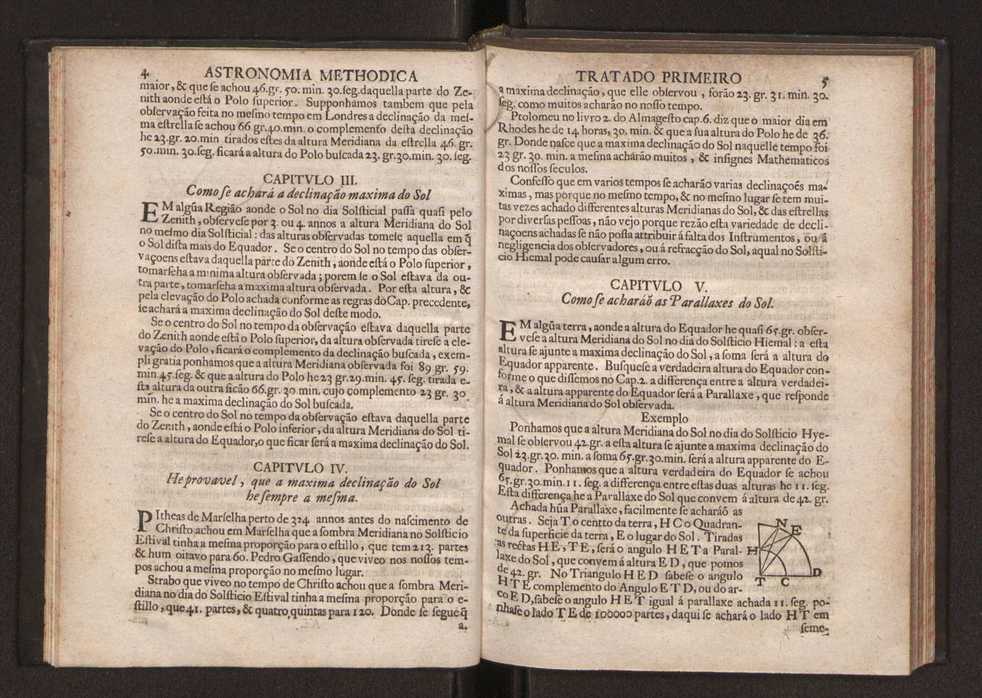 4 ASTRONOMIA METHODICA
maior, & que se achou 46.gr. 50. min. 30.seg.daquella parte do Ze-
nith aonde está o Polo superior. Supponhamos tambem que pela
observação feita no mesmo tempo em Londres a declinação da mes-
ma estrella se achou 66 gr.40.min. o complemento desta declinação
he 23.gr. 20.min tirados estes da altura Meridiana da estrella 46. gr.
50.min. 30.seg. ficará a altura do Polo buscada 23. gr.30.min. 30. seg.
CAPITVLO III.
Como se achará a declinação maxima do Sol
EM algũa Região aonde o Sol no dia Solsticial passa quasi pelo
Zenith, observese por 3. ou 4. annos a altura Meridiana do Sol
no mesmo dia Solsticial: das alturas observadas tomese aquella em q̃
o Sol dista mais do Equador. Se o centro do Sol no tempo das obser-
vaçoens estava daquella parte do Zenith, aonde está o Polo superior,
tomarseha a minima altura observada; porem se o Sol estava da ou-
tra parte, tomarseha a maxima altura observada. Por esta altura, &
pela elevação do Polo achada conforme as regras do Cap. precedente,
se achará a maxima declinação do Sol deste modo.
Se o centro do Sol no tempo da observação estava daquella parte
do Zenith aonde está o Polo superior, da altura observada tirese a ele-
vação do Polo, ficará o complemento da declinação buscada, exem-
pli gratia ponhamos que a altura Meridiana observada foi 89 gr. 59.
min.45.seg. & que a altura do Polo he 23 gr.29.min. 45. seg. tirada e-
sta altura da outra ficão 66.gr. 30.min. cujo complemento 23 gr. 30.
min. he a maxima declinação do Sol buscada.
Se o centro do Sol no tempo da observação estava daquella parte
do Zenith, aonde está o Polo inferior, da altura Meridiana do Sol ti-
rese a altura do Equador,o que ficar será a maxima declinação do Sol.
CAPITVLO IV.
He provavel, que a maxima declinação do Sol
he sempre a mesma.
PItheas de Marselha perto de 324 annos antes do nascimento de
Christo achou em Marselha que a sombra Meridiana no Solsticio
Estival tinha a mesma proporção para o estillo, que tem 213. partes
& hum oitavo para 60. Pedro Gassendo, que viveo nos nossos tem-
pos achou a mesma proporção no mesmo lugar.
Strabo que viveo no tempo de Christo achou que a sombra Meri-
diana no dia do Solsticio Estival tinha a mesma proporção para o e-
stillo, que 41. partes, & quatro quintas para 120. Donde se segue q̃
a.
TRATADO PRIMEIRO 5
a maxima declinação, que elle observou, forão 23. gr. 31. min. 30.
seg. como muitos acharão no nosso tempo.
Ptolomeu no livro 2. do Almagesto cap.6. diz que o maior dia em
Rhodes he de 14 horas, 30. min. & que a sua altura do Polo he de 36.
gr. Donde nasce que a maxima declinação do Sol naquelle tempo foi
23 gr. 30. min. a mesma achárão muitos, & insignes Mathematicos
dos nossos seculos.
Confesso que em varios tempos se acharão varias declinações ma-
ximas, mas porque no mesmo tempo, & no mesmo lugar se tem mui-
tas vezes achado differentes alturas Meridianas do Sol, & das estrellas
por diversas pessoas, não vejo porque rezão esta variedade de decli-
naçoens achadas se não possa attribuir á falta dos Instrumentos, ou á
negligencia dos observadores, ou á refracção do Sol, a qual no Solsti-
cio Hiemal pode causar algum erro.
CAPITVLO V.
Como se acharáõ as Parallaxes do Sol.
EM algũa terra, aonde a altura do Equador he quasi 65.gr. obser-
vese a altura Meridiana do Sol no dia do Solsticio Hiemal: a esta
altura se ajunte a maxima declinação do Sol, a soma será a altura do
Equador apparente. Busquese a verdadeira altura do Equador con-
forme o que dissemos no Cap.2. a differença entre a altura verdadei-
ra, & a altura apparente do Equador será a Parallaxe, que responde
á altura Meridiana do Sol observada.
Exemplo
Ponhamos que a altura Meridiana do Sol no dia do Solsticio Hye-
mal se observou 42.gr. a esta altura se ajunte a maxima declinação do
Sol 23.gr.30. min. a soma 65.gr.30.min. será a altura apparente do E-
quador. Ponhamos que a altura verdadeira do Equador se achou
65.gr.30.min. 11. seg. a differença entre estas duas alturas he 11. seg.
Esta differença he a Parallaxe do Sol que convem á altura de 42. gr.
Achada hũa Parallaxe, facilmente se acharáõ as
outras. Seja T o centro da terra, H C o Quadran-
te da superficie da terra, E o lugar do Sol. Tiradas
as rectas H E, T E, será o angulo H E T a Paral-
laxe do Sol, que convem á altura E D, que pomos
de 42. gr. No Triangulo H E D sabese o angulo
H T E complemento do Angulo E T D, ou do ar-
co E D, sabese o angulo H E T igual á parallaxe achada 11. seg. po-
nhase o lado T E de 100000 partes, daqui se achará o lado H T em
seme-
N
E
H
T C D